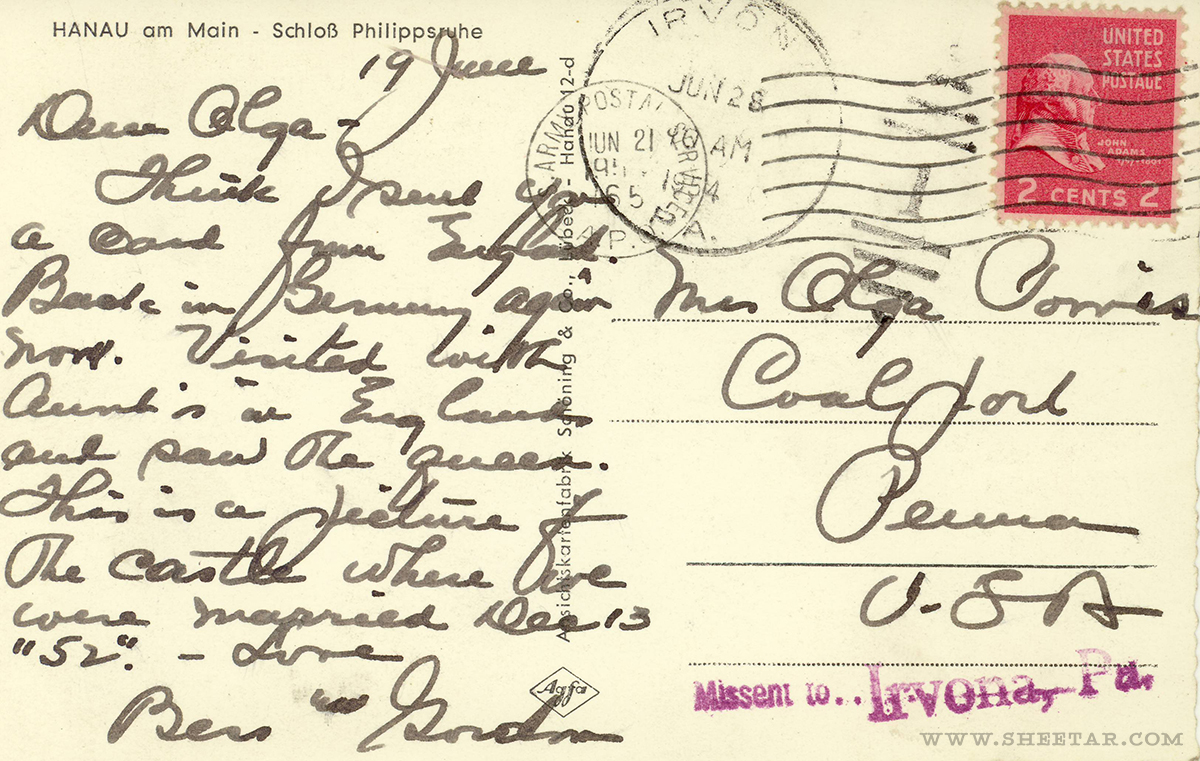 HANAU am Main - Schloß Philippsruhe
19 June
Dear Olga -
Think I sent you
a card from England.
Back in Germany again
now. Visited with
Aunt's in England
and saw the queen.
This is a picture of
the castle where we
were married Dec 13
"52". - Love
Bess "n Gordon
Ansichtskartenfabrik Schöning & Co., Lübeck - Hanau 12-d
Agfa
IRVON
JUN 28
AM
ARMY POSTAL SERVICE
JUN 21
A.P.
65
PA.
UNITED
STATES
POSTAGE
JOHN
ADAMS
1797-1801
2 CENTS 2
Mrs Olga
Coalport
Penna
U.S.A
Missent to.. Irvona, Pa.
WWW.SHEETAR.COM